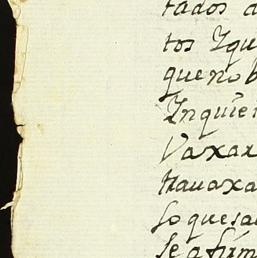 tados a
tos Yqu
que no b
Inquie
Vaxar
travaxa
Lo que sa
Se afirm